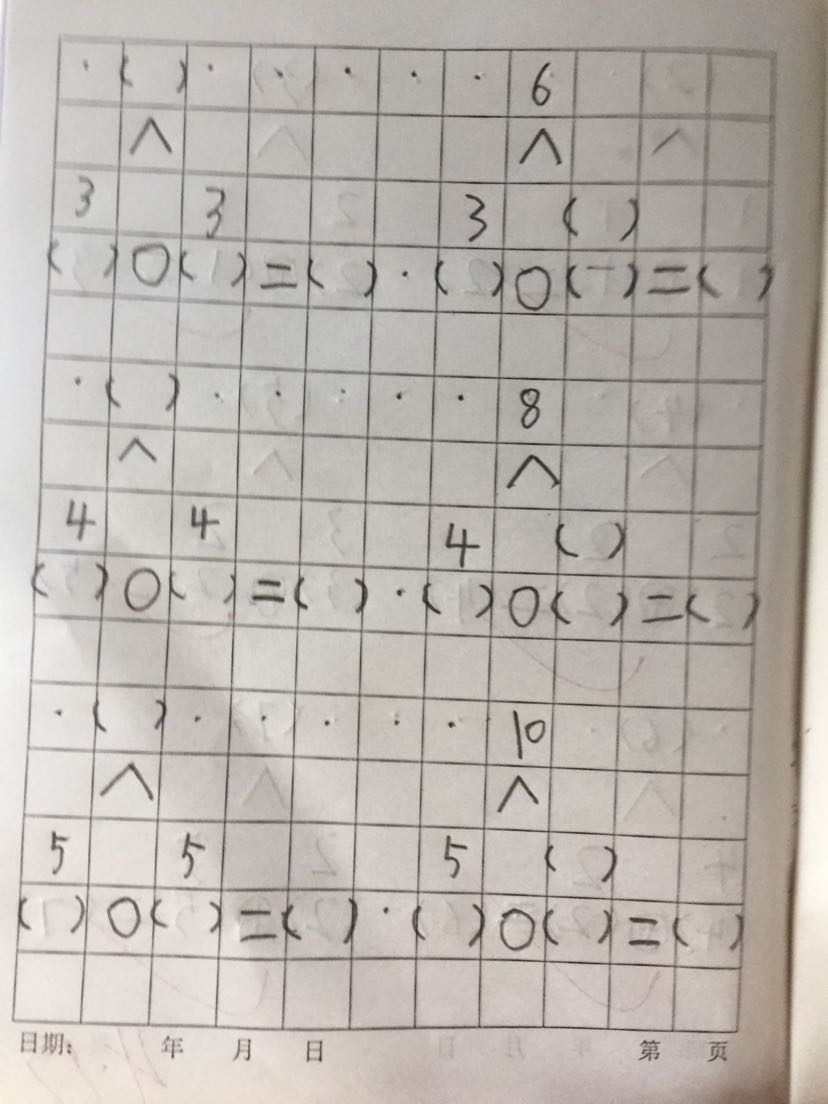 · ( ) · · · · · 6
∧ ∧
3 3 3 ( )
( ) ○ ( ) = ( ) · ( ) ○ ( ) = ( )
· ( ) · · · · · 8
∧ ∧
4 4 4 ( )
( ) ○ ( ) = ( ) · ( ) ○ ( ) = ( )
· ( ) · · · · · 10
∧ ∧
5 5 5 ( )
( ) ○ ( ) = ( ) · ( ) ○ ( ) = ( )
日期: 年 月 日 第 页